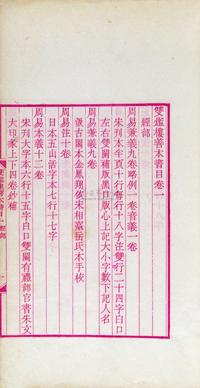 雙鑑樓善本書目卷一
經部
周易兼義九卷略例一卷音義一卷
宋刊本半頁十行每行十八字注雙行二十四字白口
左右雙闌補版黑口版心上記大小字數下記人名
周易兼義九卷
汲古閣本金鳳翔依宋相臺岳氏本手校
周易注十卷
日本五山活字本七行十七字
周易本義十二卷
宋刊大字本六行十五字白口雙闌有應部官書朱文
大印象上下四卷鈔補